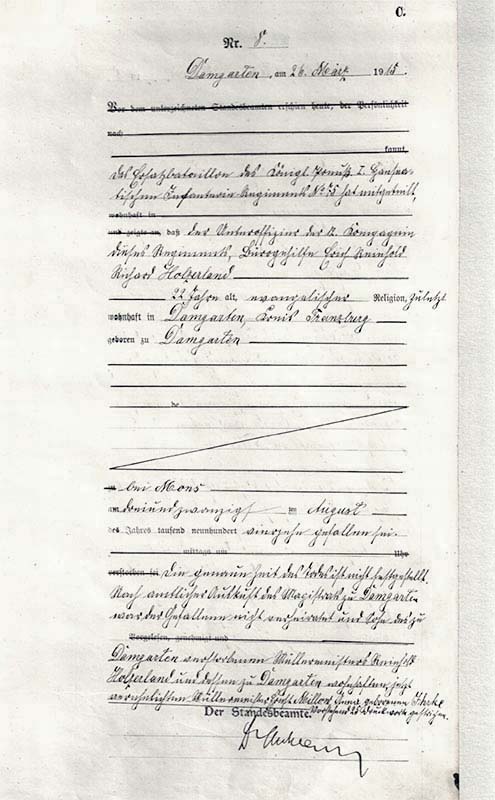 C.
Nr. 8.
Damgarten, am 26. März 1915.
Vor dem unterzeichneten Standesbeamten erschien heute, der Persönlichkeit
nach
kannt,
das Ersatzbataillon des Königl. Preuß. I. Hansea-
tischen Infanterie Regiments No 75 hat mitgeteilt,
wohnhaft in
und zeigte an, daß der Unteroffizier der 12. Kompagnie
dieses Regiments, Bürogehilfe Erich Reinhold
Richard Holzerland
22 Jahre alt, evangelischer Religion, zuletzt
wohnhaft in Damgarten, Kreis Franzburg
geboren zu Damgarten
de
zu bei Mons
am dreiundzwanzigst im August
des Jahres tausend neunhundert vierzehn gefallen sei.
mittags um Uhr
verstorben sei Die genaue Zeit des Todes ist nicht festgestellt.
Nach amtlicher Auskunft des Magistrats zu Damgarten
war der Gefallene nicht verheiratet und Sohn des zu
Vorgelesen, genehmigt und
Damgarten verstorbenen Müllermeisters Reinhold
Holzerland und dessen zu Damgarten wohnhaften, jetzt
verehelichten Müllermeister Millow, Anna geborenen Ihrke
Vorstehend 25 Druckworte gestrichen.
Der Standesbeamte.